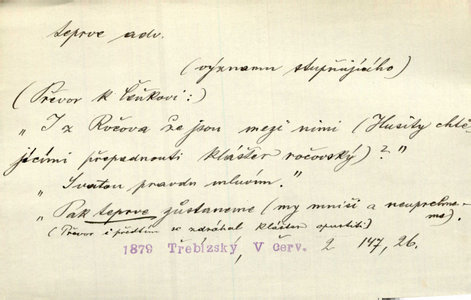 teprve adv.
(významu stupňujícího)
(Převor k Čeňkovi:)
„I z Ročova že jsou mezi nimi (Husity chtě-
jícími přepadnouti klášter ročovský)?"
„Svatou pravdu mluvím."
„Pak teprve zůstaneme (my mniši a neuprchne-
me).
(Převor i předtím se zdráhal klášter opustiti)
1879 Třebízský, V červ. 2 147, 26.